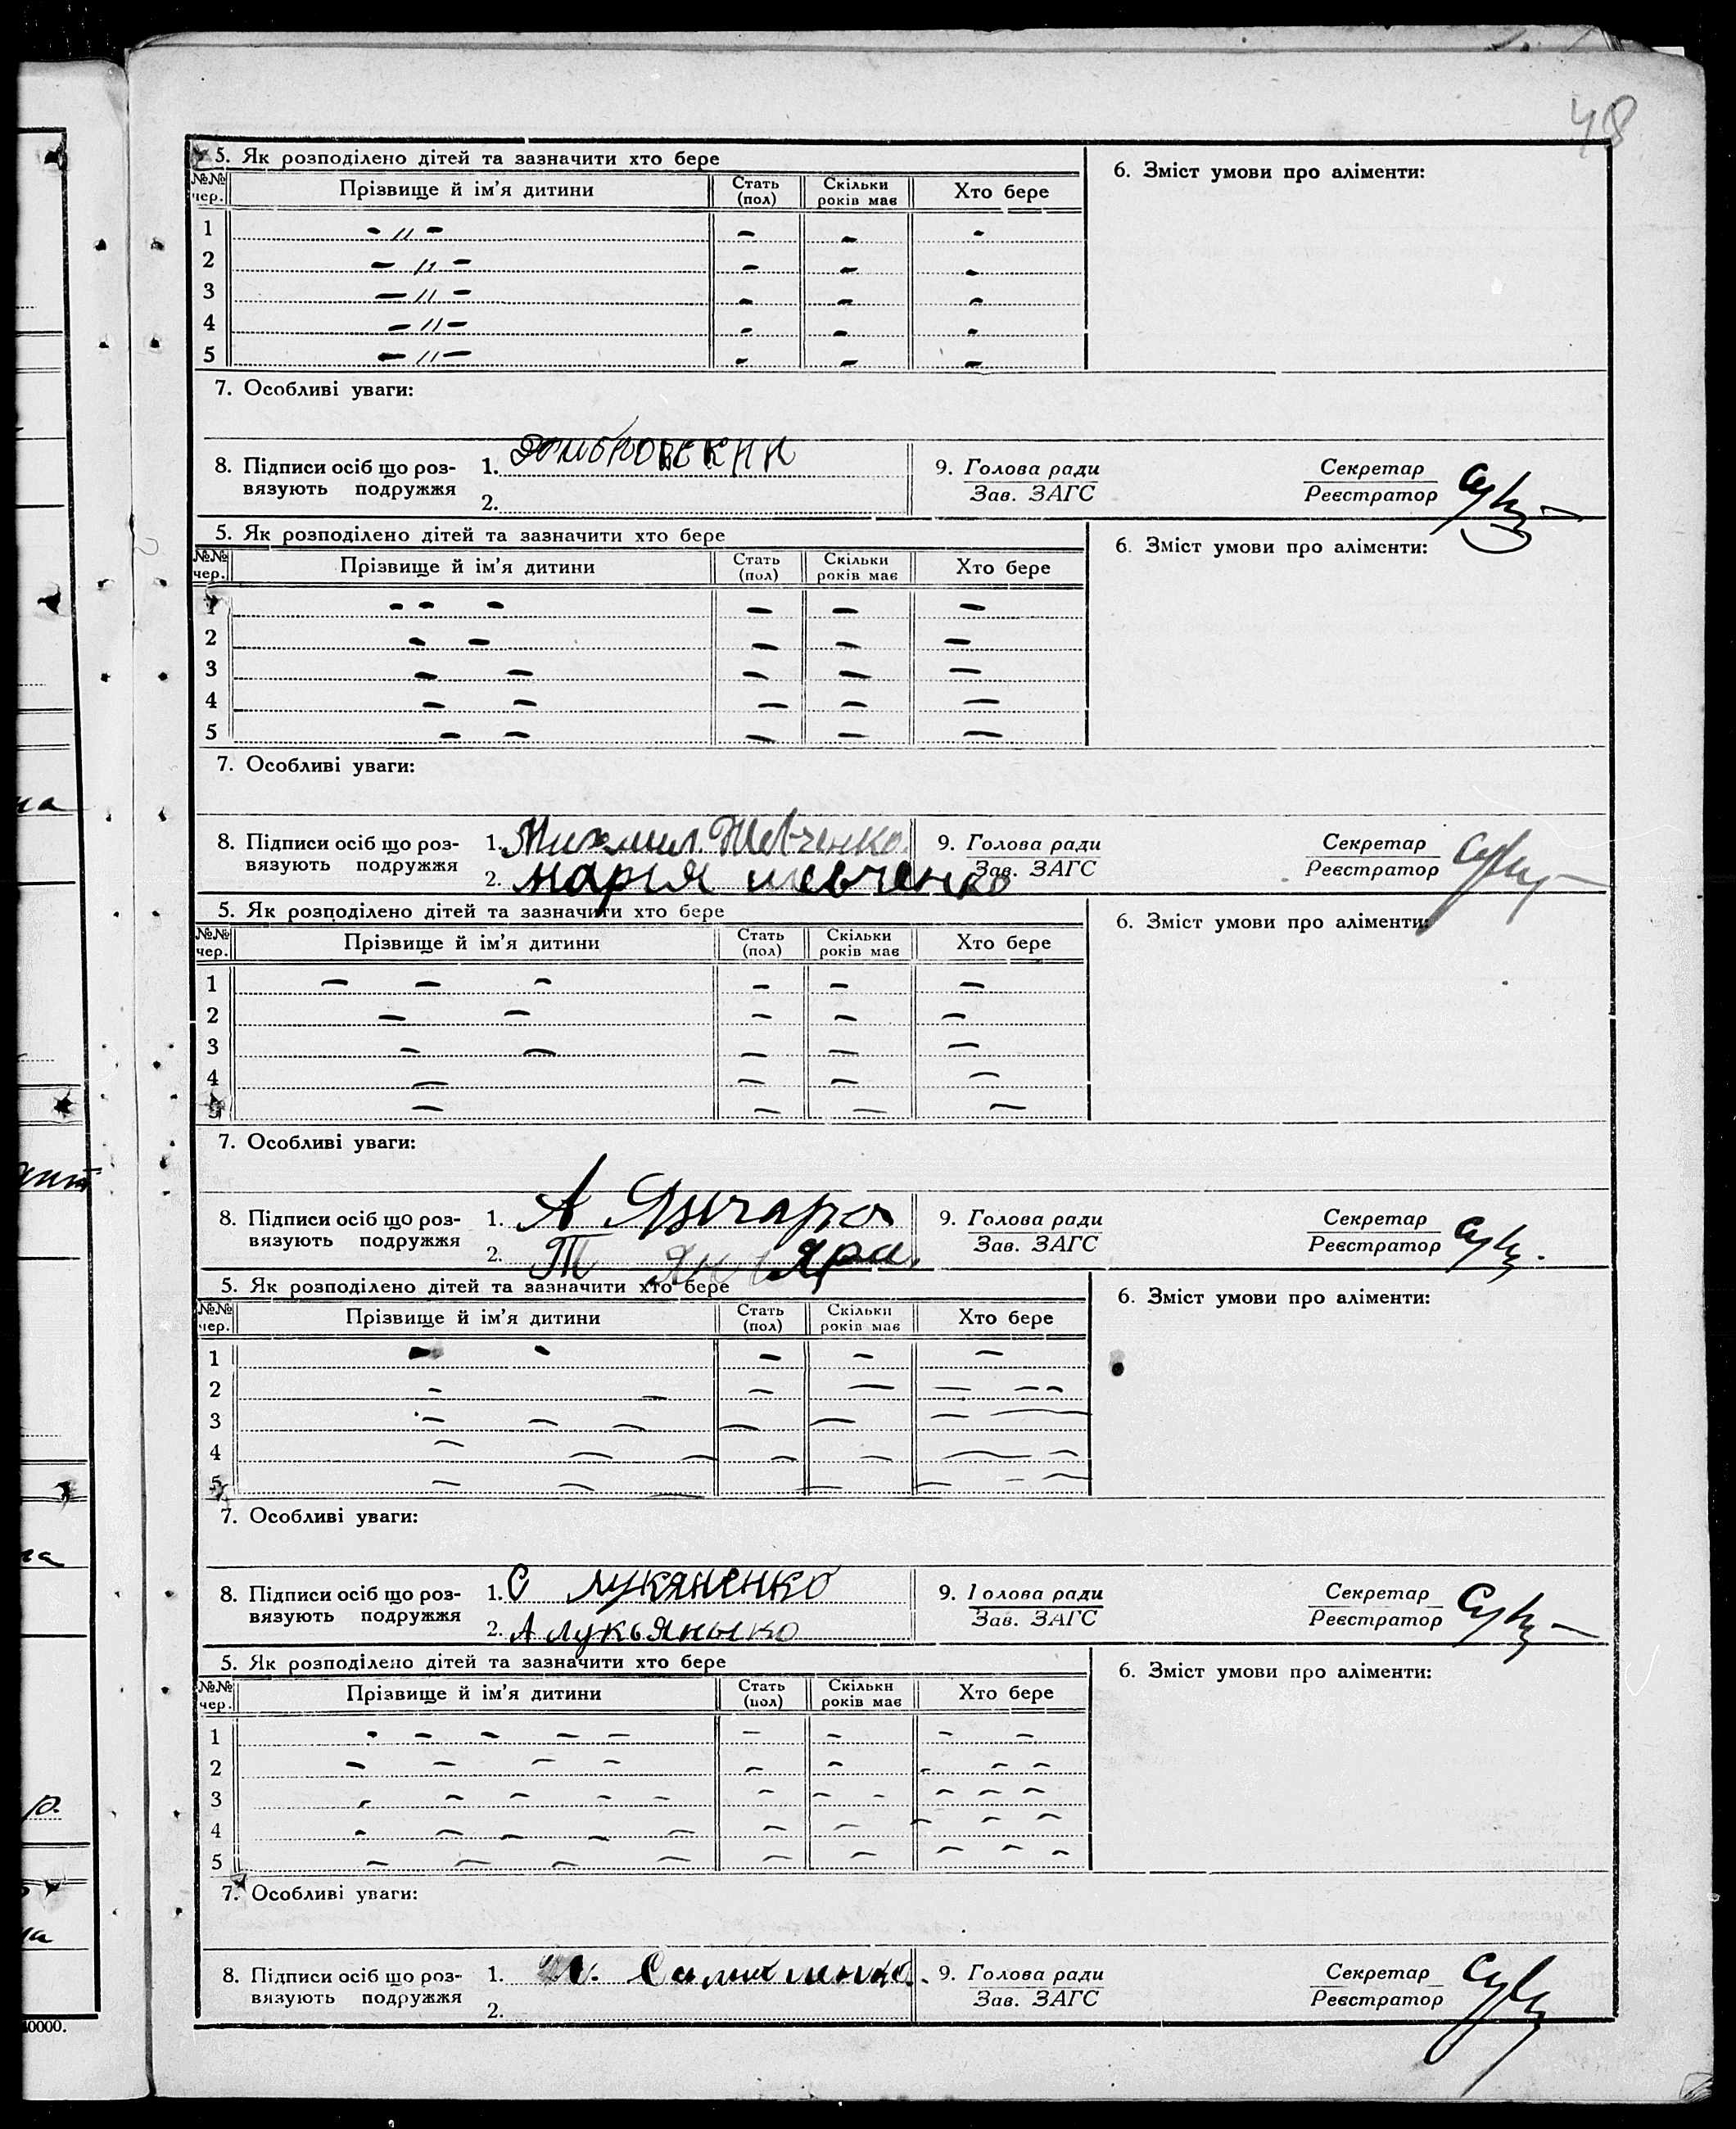 48
5. Як розподілено дітей та зазначити хто бере
6. Зміст умови про аліменти:
№№ чер. Прізвище й ім'я дитини Стать (пол) Скільки років має Хто бере
1 - " - - - -
2 - " - - - -
3 - " - - - -
4 - " - - - -
5 - " - - - -
7. Особливі уваги:
8. Підписи осіб що роз-вязують подружжя 1. Домбровский 9. Голова ради Зав. ЗАГС Секретар Реєстратор
2.
5. Як розподілено дітей та зазначити хто бере
6. Зміст умови про аліменти:
№№ чер. Прізвище й ім'я дитини Стать (пол) Скільки років має Хто бере
1 - - - - - -
2 - - - - -
3 - - - - -
4 - - - - -
5 - - - - -
7. Особливі уваги:
8. Підписи осіб що роз-вязують подружжя 1. Михаил Шевченко 9. Голова ради Зав. ЗАГС Секретар Реєстратор
2. Мария Шевченко
5. Як розподілено дітей та зазначити хто бере
6. Зміст умови про аліменти:
№№ чер. Прізвище й ім'я дитини Стать (пол) Скільки років має Хто бере
1 - - - - - -
2 - - - - -
3 - - - - -
4 - - - -
5 - - - -
7. Особливі уваги:
8. Підписи осіб що роз-вязують подружжя 1. А 9. Голова ради Зав. ЗАГС Секретар Реєстратор
2. Т
5. Як розподілено дітей та зазначити хто бере
6. Зміст умови про аліменти:
№№ чер. Прізвище й ім'я дитини Стать (пол) Скільки років має Хто бере
1 - - - - -
2 - - - - - - -
3 - - - - - - -
4 - - - - - - -
5 - - - - - - -
7. Особливі уваги:
8. Підписи осіб що роз-вязують подружжя 1. С Лукяненко 9. Голова ради Зав. ЗАГС Секретар Реєстратор
2. А Лукьяныко
5. Як розподілено дітей та зазначити хто бере
6. Зміст умови про аліменти:
№№ чер. Прізвище й ім'я дитини Стать (пол) Скільки років має Хто бере
1 - - - - - - - - -
2 - - - - - - - - -
3 - - - - - - - - - - -
4 - - - - - - - - - -
5 - - - - - - - - -
7. Особливі уваги:
8. Підписи осіб що роз-вязують подружжя 1. 9. Голова ради Зав. ЗАГС Секретар Реєстратор
2.
0000.